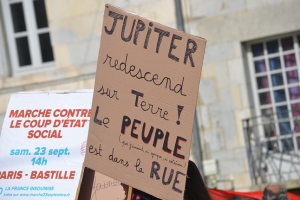 JUPITER
redescend
sur Terre !
Le PEUPLE
est dans la RUE
MARCHE CONTRE
LE COUP D'ÉTAT
SOCIAL
sam. 23 sept.
14h
PARIS - BASTILLE
LA FRANCE INSOUMISE